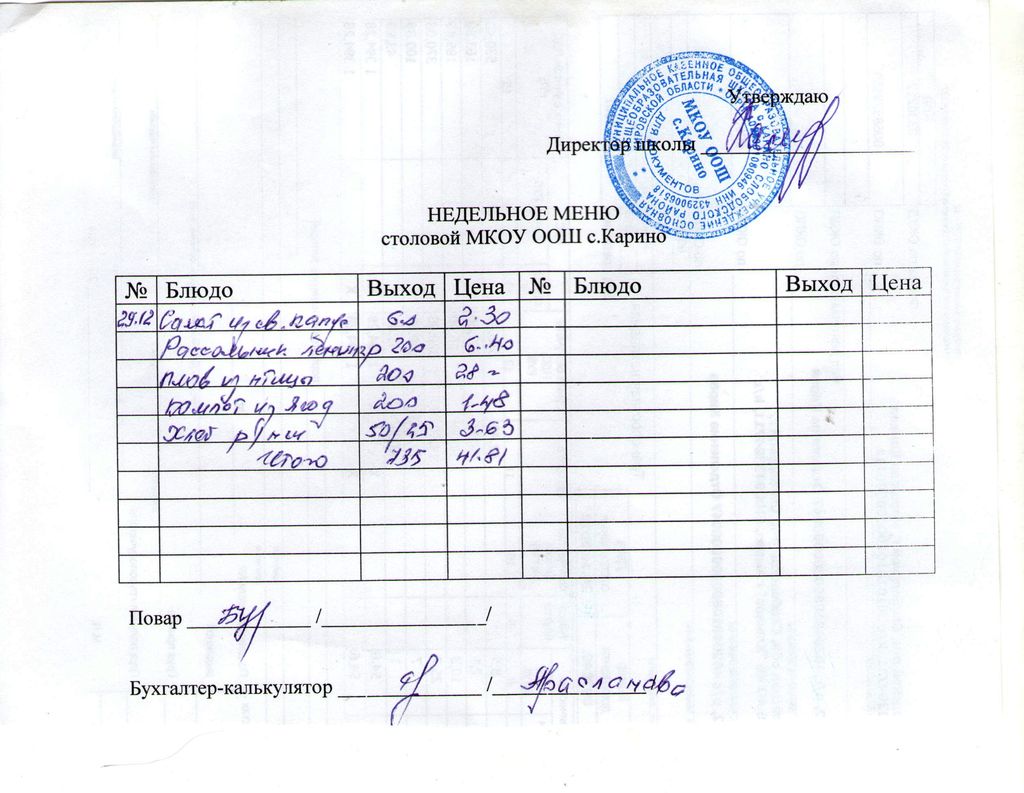 Утверждаю
Директор школы
МУНИЦИПАЛЬНОЕ КАЗЕННОЕ ОБЩЕОБРАЗОВАТЕЛЬНОЕ УЧРЕЖДЕНИЕ ОСНОВНАЯ
ОБЩЕОБРАЗОВАТЕЛЬНАЯ ШКОЛА с. КАРИНО СЛОБОДСКОГО РАЙОНА
КИРОВСКОЙ ОБЛАСТИ * ИНН 4329006518
ДЛЯ ДОКУМЕНТОВ
МКОУ ООШ
с.Карино
НЕДЕЛЬНОЕ МЕНЮ
столовой МКОУ ООШ с.Карино
№ Блюдо Выход Цена № Блюдо Выход Цена
29.12 Салат из св. капус 60 2-30
Рассольник ленингр 200 6-40
плов из птицы 200 28-
компот из ягод 200 1-48
Хлеб р/пш 50/25 3-63
Итого 735 41-81
Повар / /
Бухгалтер-калькулятор / Арасланова